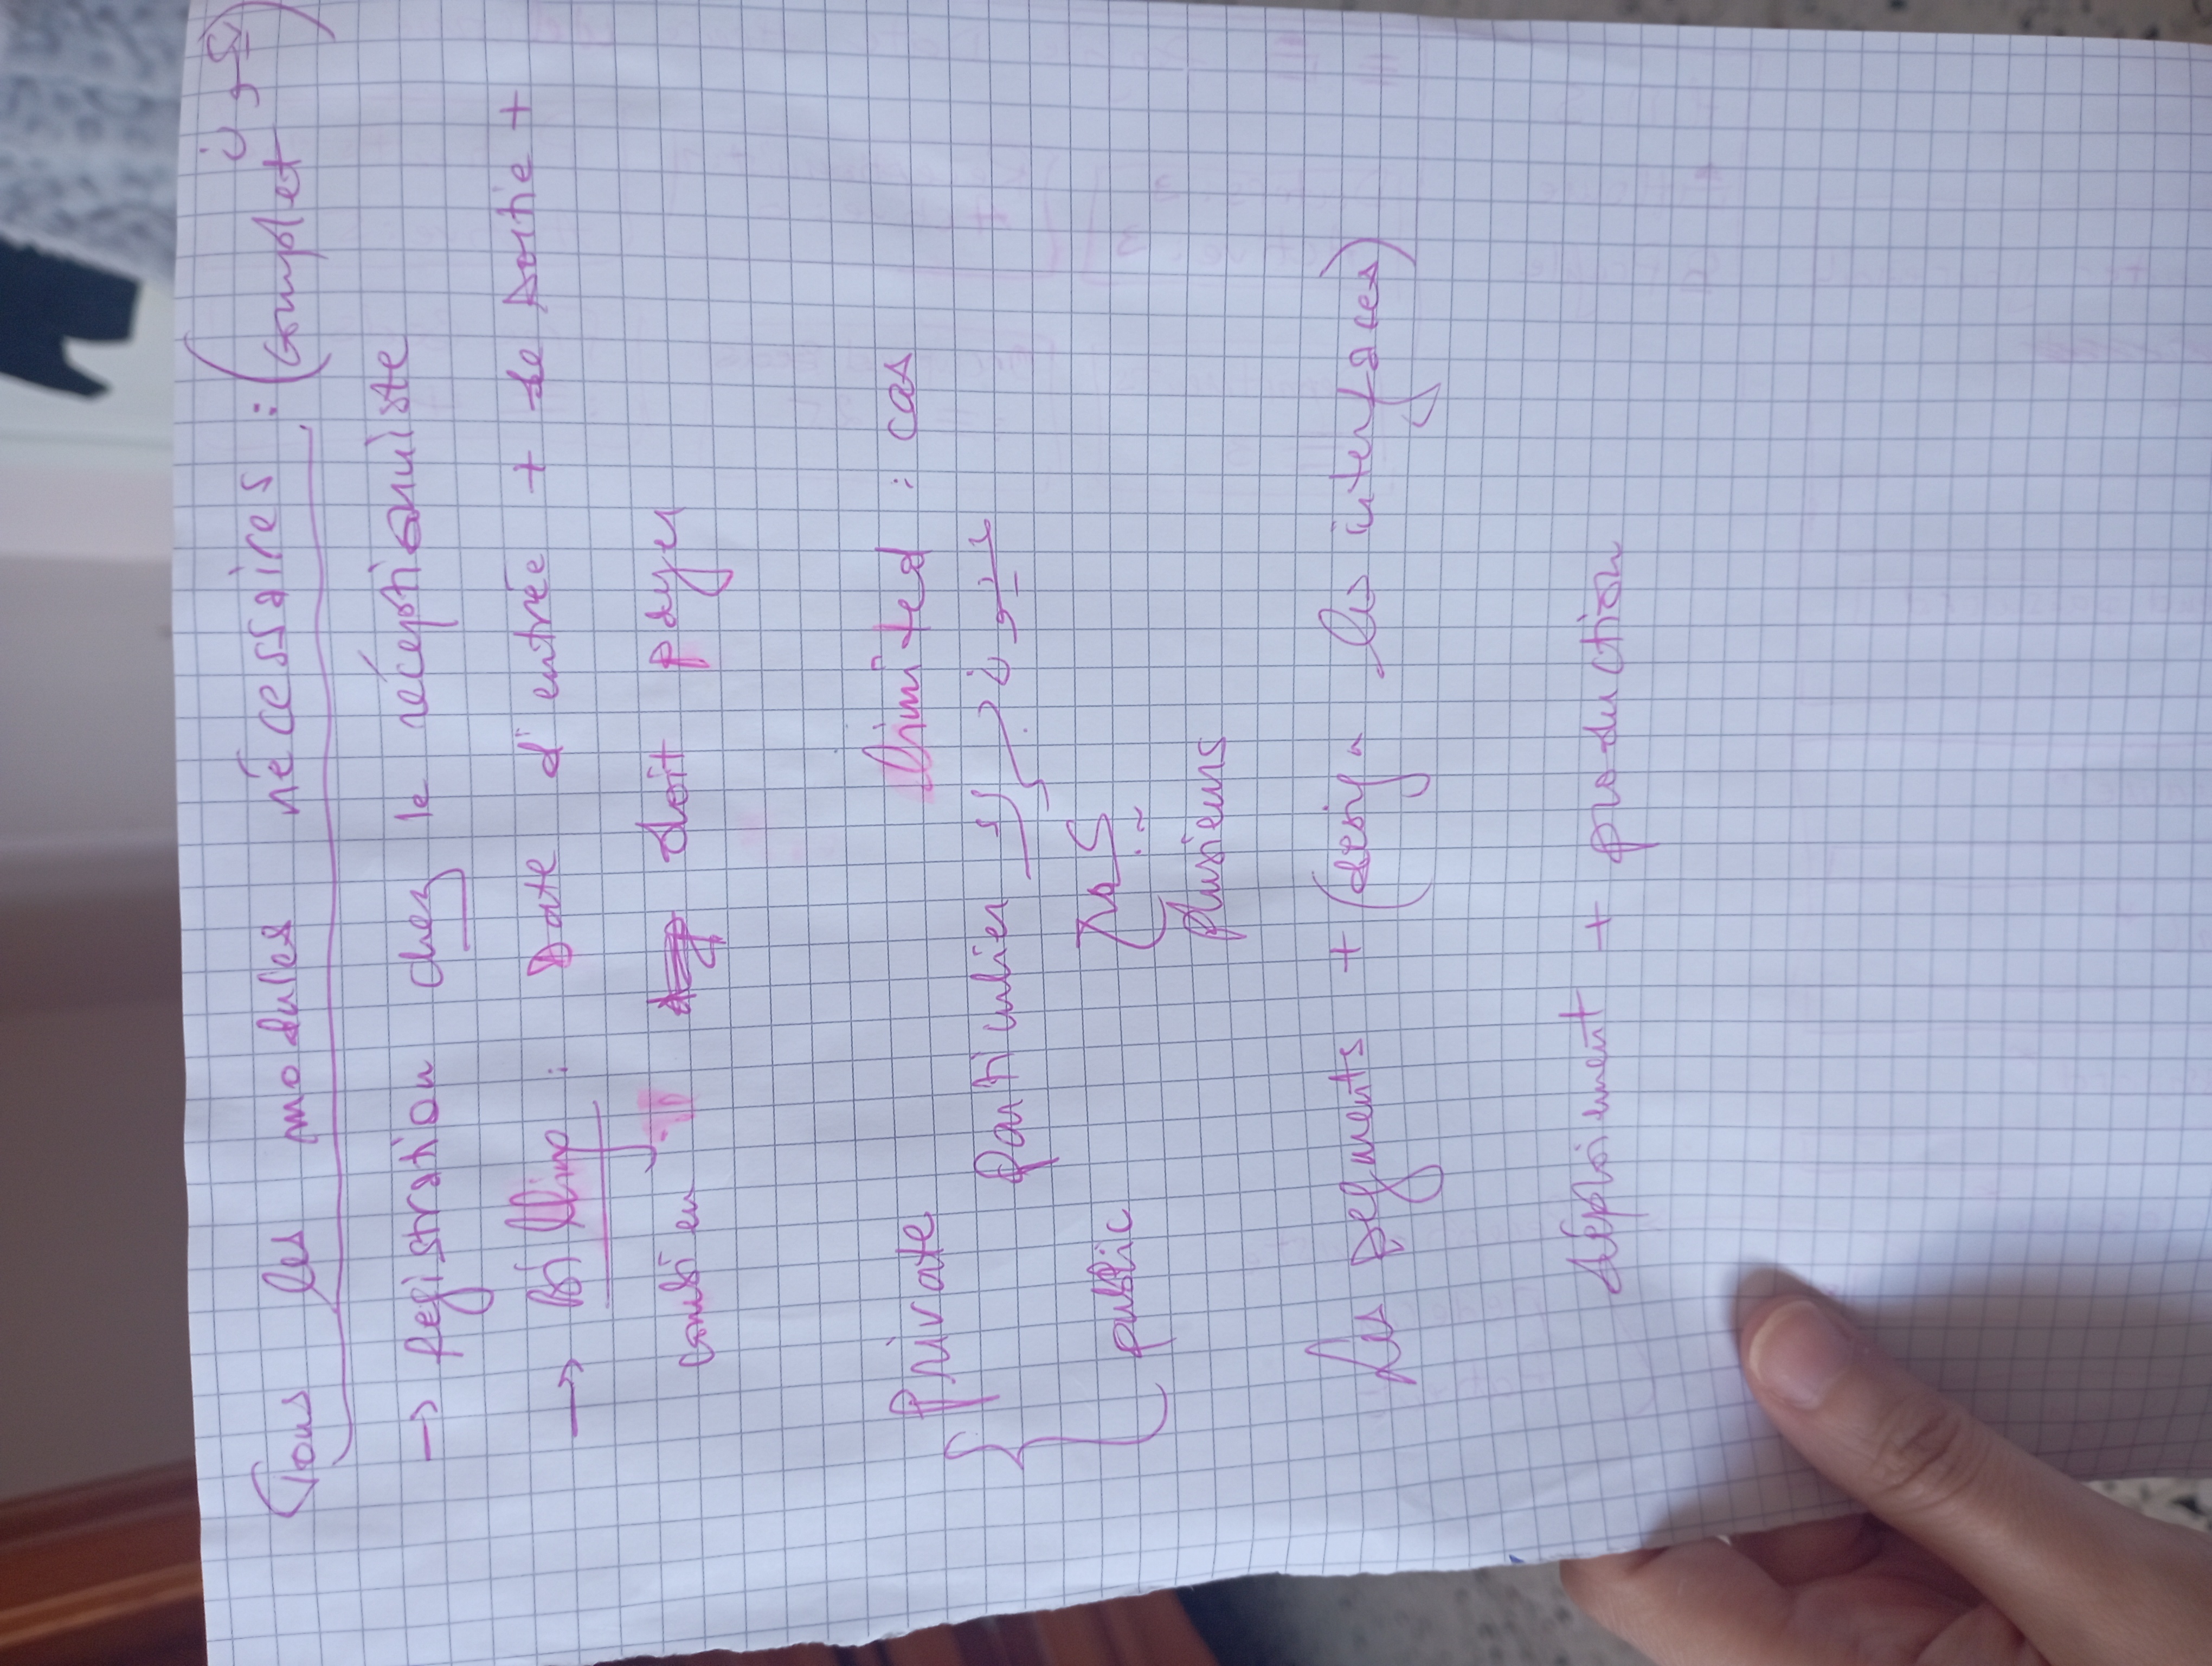 Tous les modules nécessaires : (complet
→ Registration chez le réceptionniste
→ Billing : Date d'entrée + de sortie +
combien il doit payer
Private limited : cas
particulier
public
plusieurs
Les segments + (design les interfaces)
déploiment + production